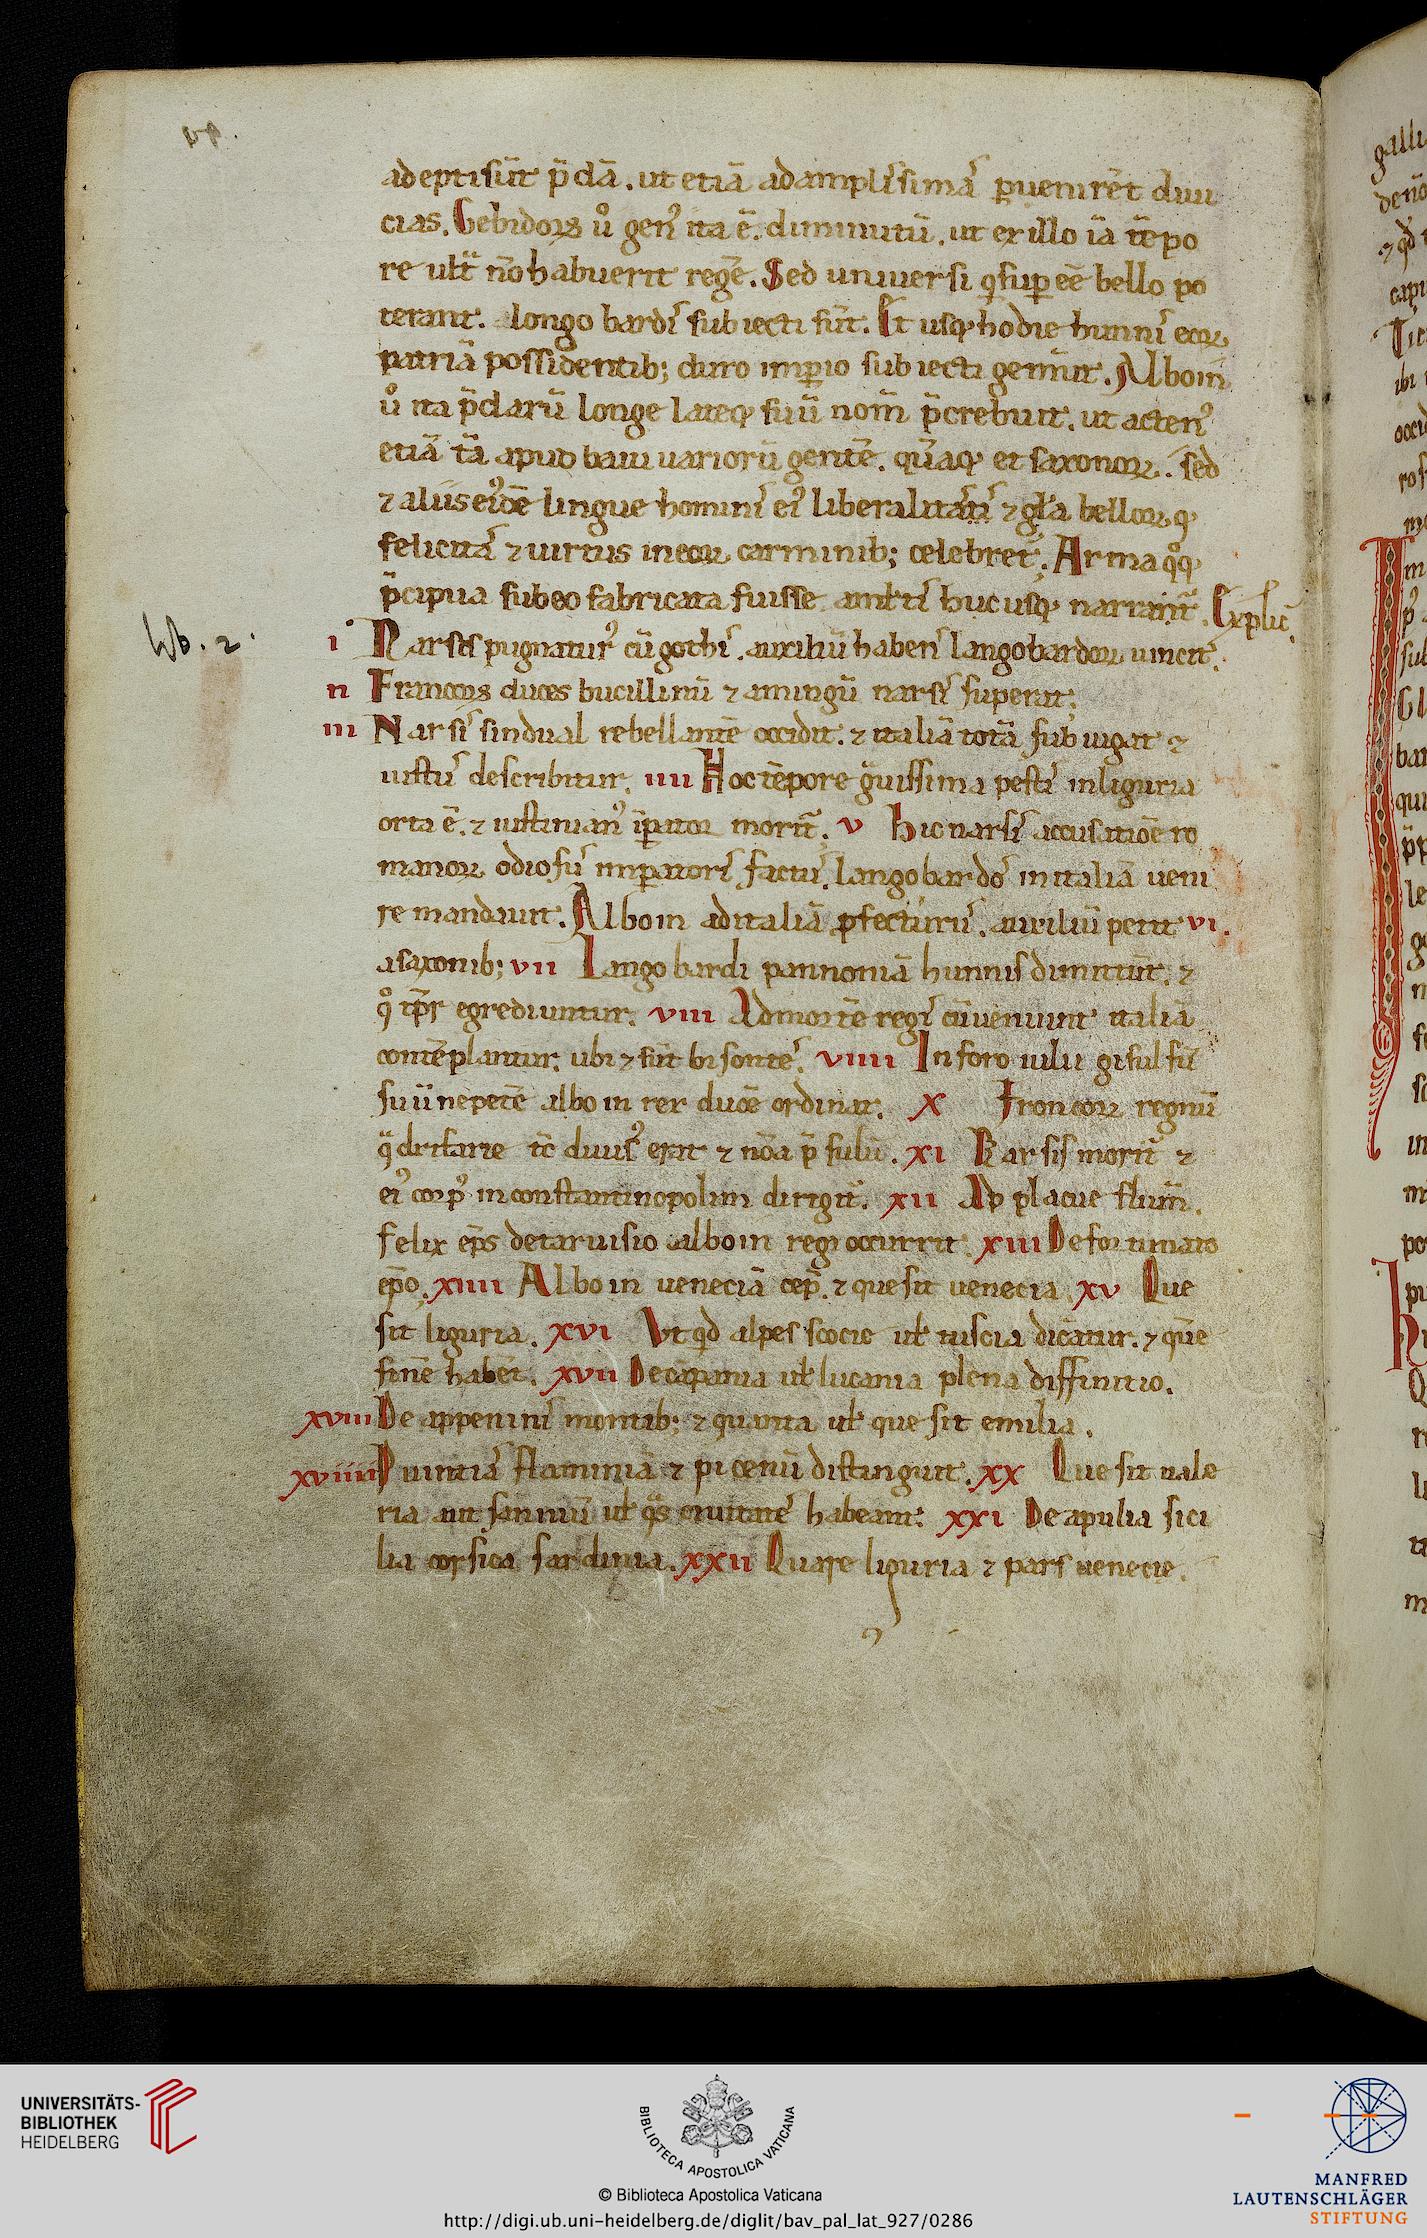 adepti sūt p̄dā . ut etiā ad amplissimā ꝑuenirēt diui
cias . Gebidorꝝ ů gen᷒ ita ē . diminutū . ut ex illo iā tēpo
re ult̄ nō habuerit regē . Sed uniuersi q̇ suꝑ eē bello po
terant . longobardis subiecti sūt . Et usq; hodie hunnis eoꝝ
patriā possidentib; duro imꝑio subiecti gemūt . Alboin
ů ita p̄clarū longe lateq; suū nom̄ p̄crebuit . ut acten᷒
etiā tā apud baiuuariorū gentē . quāq; et saxonoꝝ . sed
⁊ aliis ei᷒dē lingue hominēs ei᷒ liberalitas ⁊ gl̄a belloꝝq;
felicitas ⁊ uirtus in eoꝝ carminib; celebret̄ . Arma qͦq;
p̄cipua sub eo fabricata fuisse a mltis huc usq; narrant̄ . Explic̄ .
Lib . 2 .
i Narsis pugnatur᷒ cū gothis . auxiliū habens langobardoꝝ uincit .
ii Francorꝝ duces bucillinū ⁊ amingū narsis superat .
iii Narsis sindual rebellantē occidit . ⁊ italiā totā subiugat ⁊
iustus describitur . iiii Hoc tēpore g̃uissima pestis in liguria
orta ē . ⁊ iustinian᷒ iꝑator morit̄ . v hic narsis accusatiōe ro
manoꝝ odiosus imꝑatoris factus . langobardos in italiā ueni
re mandauit . Alboin ad italiā ꝓfecturus . auxiliū petit vi .
a saxonib; vii Langobardi pannoniā hunnis dimittūt . ⁊
qͦ tp̄r egrediuntur . viii Ad montē regis cū ueniunt italiā
contēplantur . ubi ⁊ sūt bisontes . viiii In foro iulii gisulfū
suū nepetē alboin rex ducē ordinat . x Froncoꝝ regnū
q̃drifarie tc̄ diuis᷒ erat . xi Narsis morit̄ ⁊
ei᷒ corp᷒ in constantinopolim dirigit̄ . xii Ad placue flum̄ .
felix ep̄s de taruisio alboin regi occurrit . xiii De fortunato
ep̄o . xiiii Alboin ueneciā cep̄ . ⁊ que sit uenecia xv Que
sit liguria . xvi Vt qd̄ alpes scocie ul̄ tuscia dicātur . ⁊ quē
finē habēt . xvii De cāpania ul̄ lucania plena diffinitio .
xviii De appeninis montib; ⁊ quanta ul̄ que sit emilia .
xviiii Puintiās flaminiā ⁊ picenū distinguit . xx Que sit uale
ria aut samniū ul̄ q̄s ciuitates habeant . xxi De apulia sici
lia corsica sardinia . xxii Quare liguria ⁊ pars uenecie .
UNIVERSITÄTS-
BIBLIOTHEK
HEIDELBERG
BIBLIOTECA APOSTOLICA VATICANA
© Biblioteca Apostolica Vaticana
http://digi.ub.uni-heidelberg.de/diglit/bav_pal_lat_927/0286
MANFRED
LAUTENSCHLÄGER
STIFTUNG